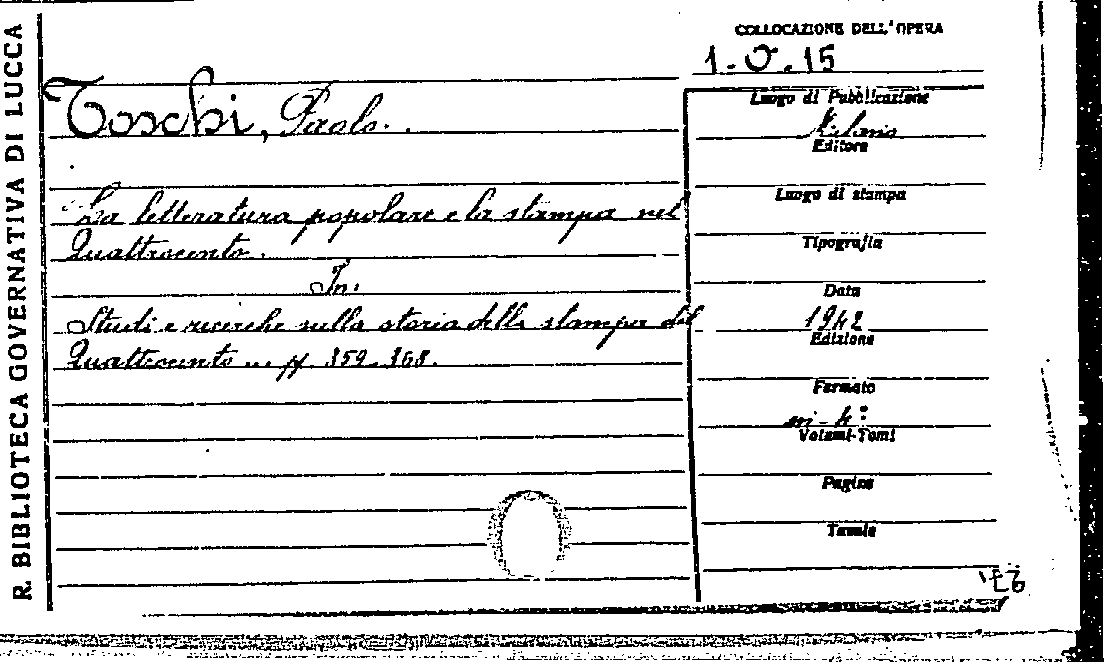 R. BIBLIOTECA GOVERNATIVA DI LUCCA
COLLOCAZIONE DELL'OPERA
1-O.15
Toschi, Paolo.
Luogo di Pubblicazione
Milano
Editore
La letteratura popolare e la stampa nel
Quattrocento.
In:
Studi e ricerche sulla storia della stampa del
Quattrocento ... pp. 359-368.
Luogo di stampa
Tipografia
Data
1942
Edizione
Formato
in-4°
Volumi-Tomi
Pagine
Tavole